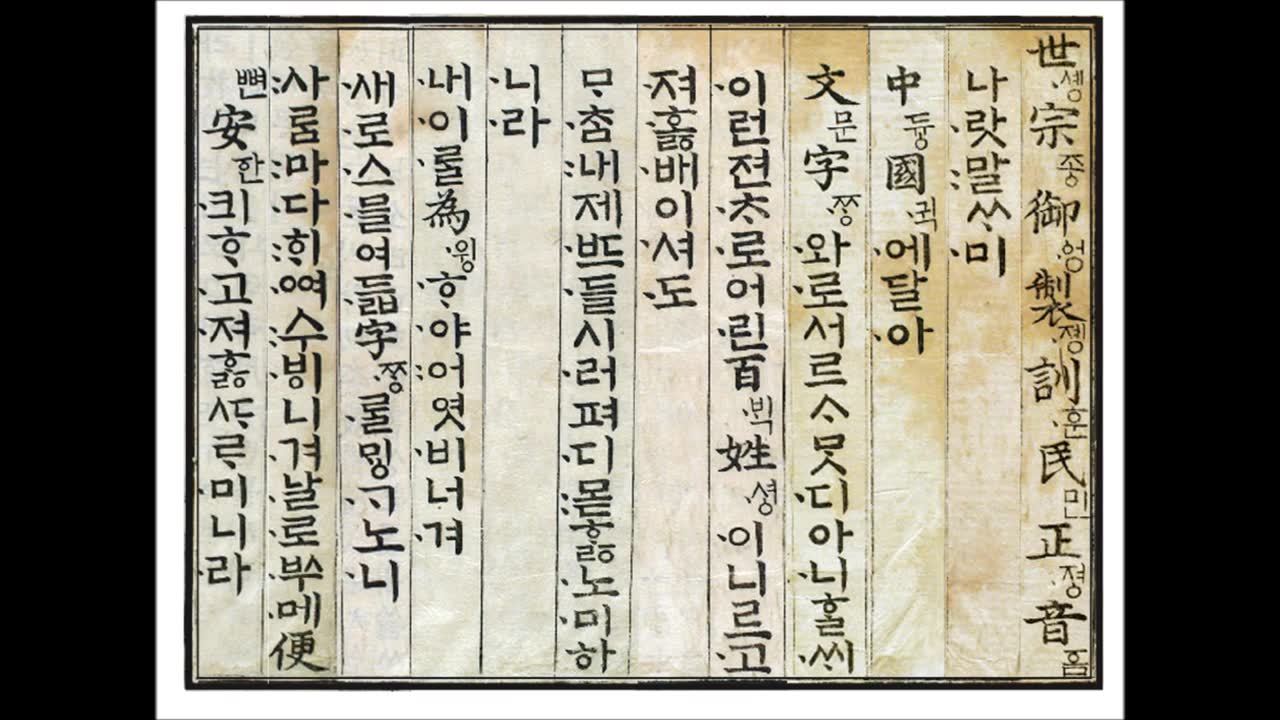 世솅宗종御엉製졩訓훈民민正졍音ᅙᅳᆷ
나랏말ᄊᆞ미
中듕國귁에달아
文문字ᄍᆞᆼ와로서르ᄉᆞᄆᆞᆺ디아니ᄒᆞᆯᄊᆡ
이런젼ᄎᆞ로어린百ᄇᆡᆨ姓셩이니르고
져호ᇙ배이셔도
ᄆᆞᄎᆞᆷ내제ᄠᅳ들시러펴디몯ᄒᆞᇙ노미하
니라
내이ᄅᆞᆯ為윙ᄒᆞ야어엿비너겨
새로스믈여듧字ᄍᆞᆼᄅᆞᆯᄆᆡᇰᄀᆞ노니
사ᄅᆞᆷ마다ᄒᆡᅇᅧ수ᄫᅵ니겨날로ᄡᅮ메便
뼌安한킈ᄒᆞ고져ᄒᆞᇙᄯᆞᄅᆞ미니라